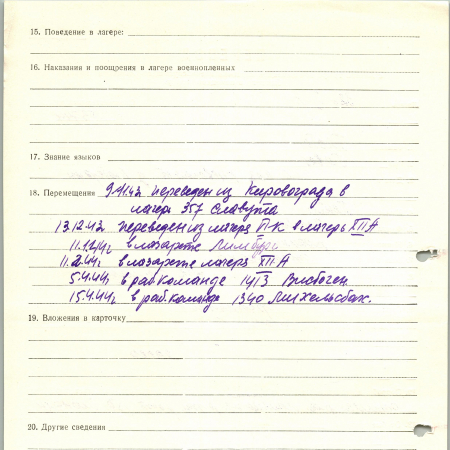 15. Поведение в лагере:
16. Наказания и поощрения в лагере военнопленных
17. Знание языков
18. Перемещения 9.11.43 переведен из Кировограда в
лагерь 357 Славута
13.12.43 переведен из лагеря П-К в лагерь XII A
11.1.44г в лазарете Лимбург
11.2.44г. в лазарете лагеря XII A
5.4.44г. в раб. команде 1413
15.4.44г. в раб. команде 1340 Михельсбах.
19. Вложения в карточку
20. Другие сведения